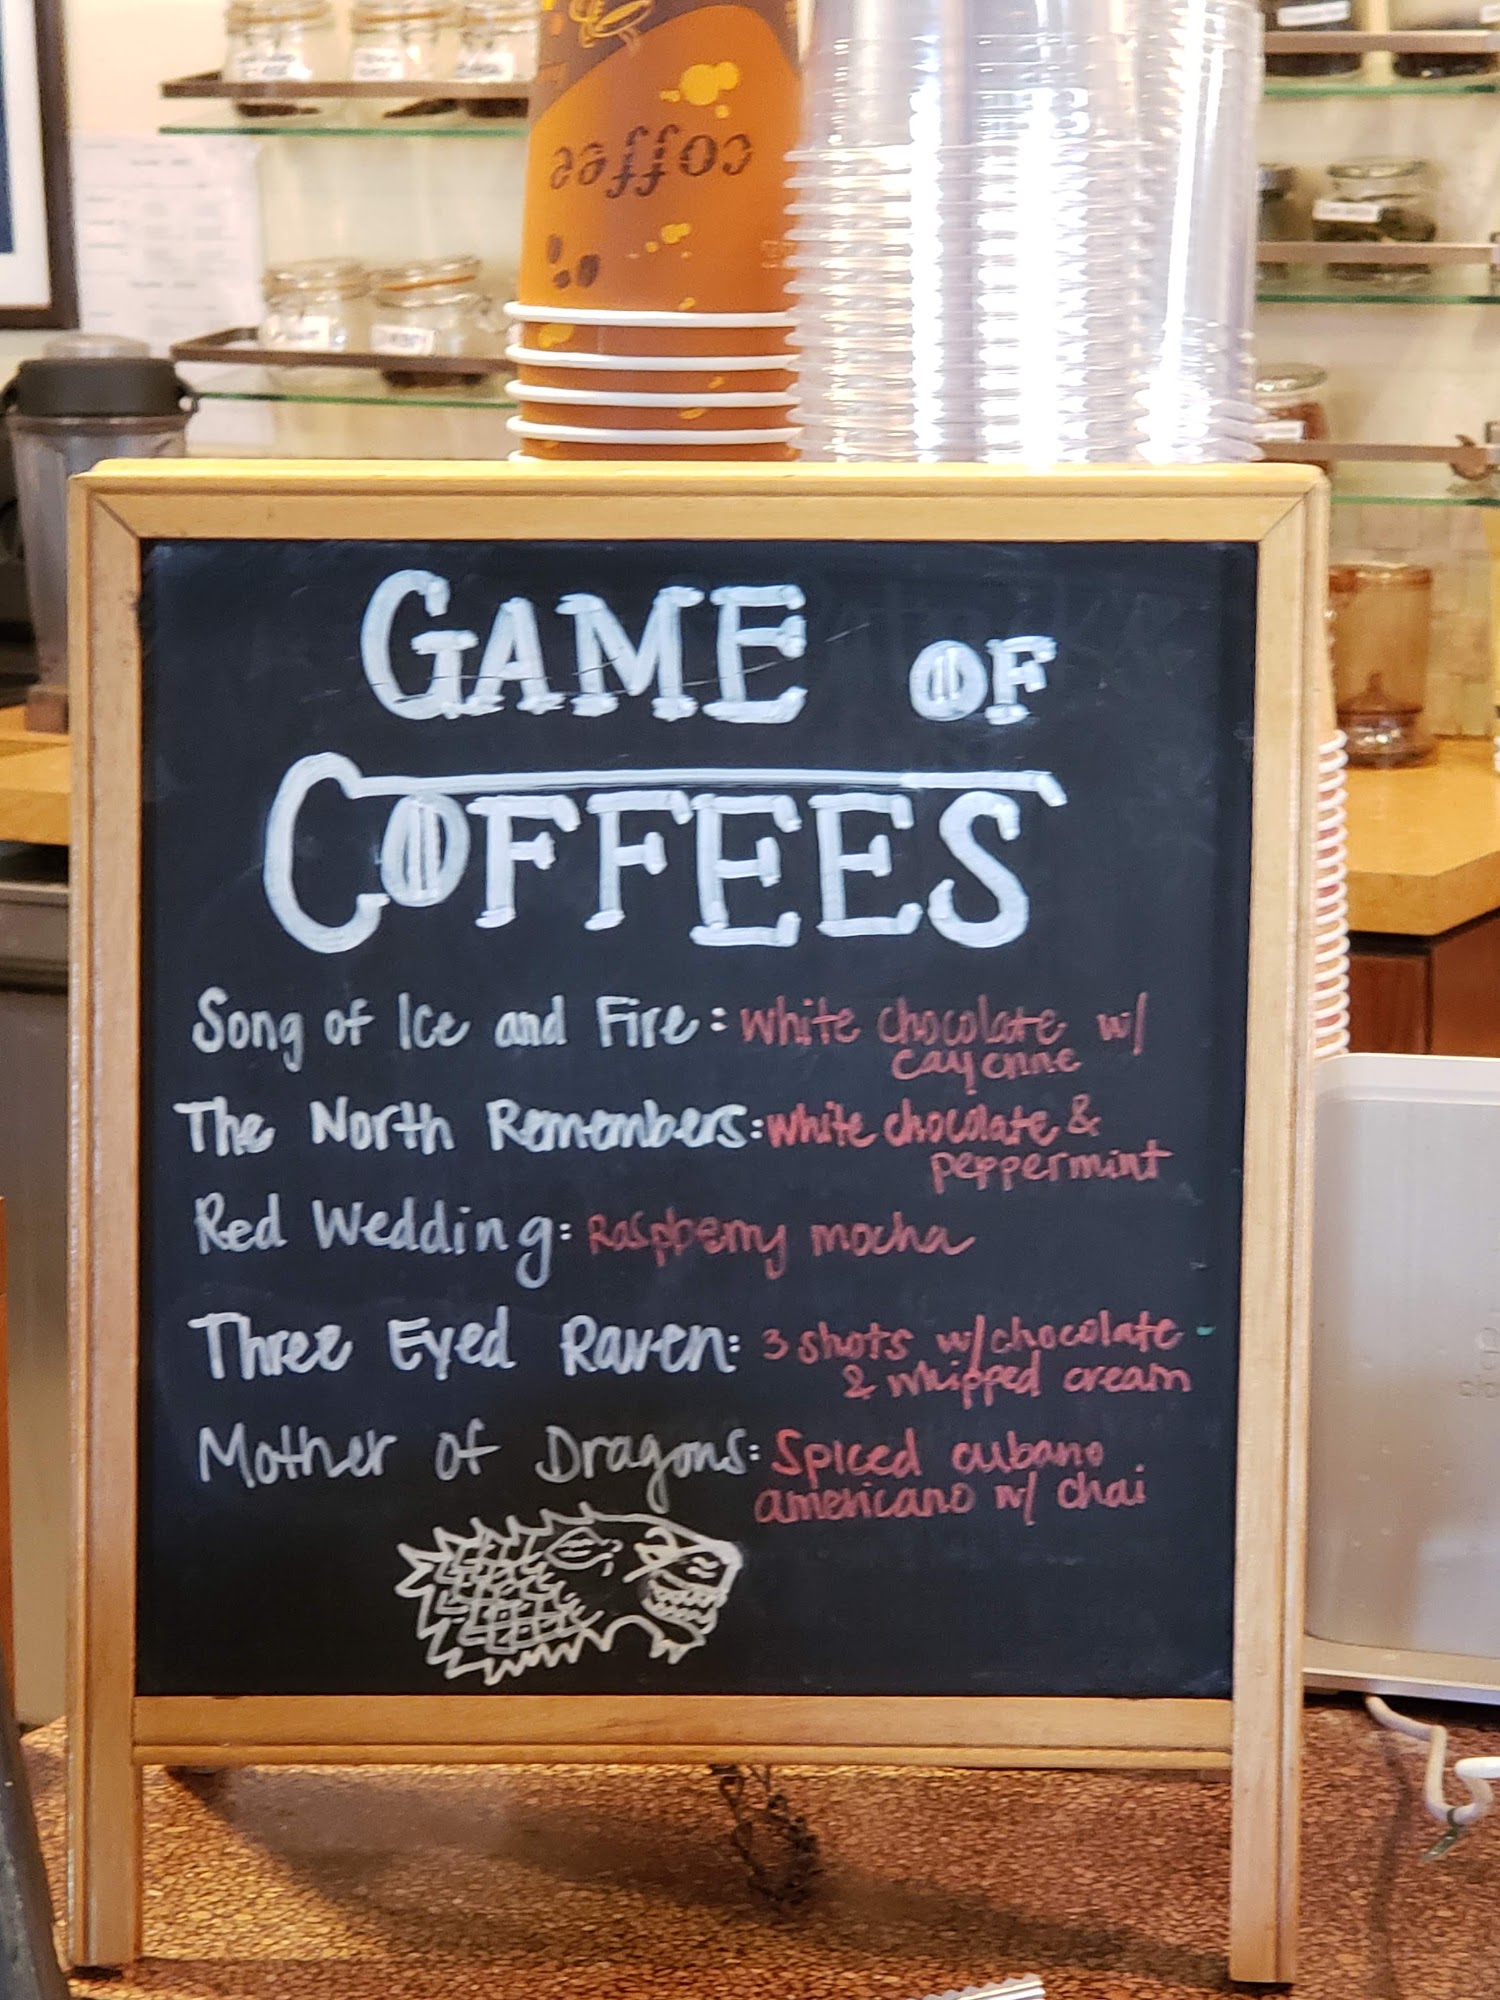 coffee
GAME OF
COFFEES
Song of Ice and Fire: White chocolate w/
cayenne
The North Remembers: White chocolate &
peppermint
Red Wedding: Raspberry mocha
Three Eyed Raven: 3 shots w/ chocolate
& whipped cream
Mother of Dragons: Spiced cubano
americano w/ chai